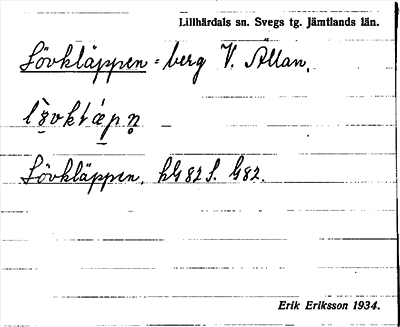 Lillhärdals sn. Svegs tg. Jämtlands län.
Lövkläppen = berg V. Ällan.
Lövkläppen. hG 82 S. G82.
Erik Eriksson 1934.